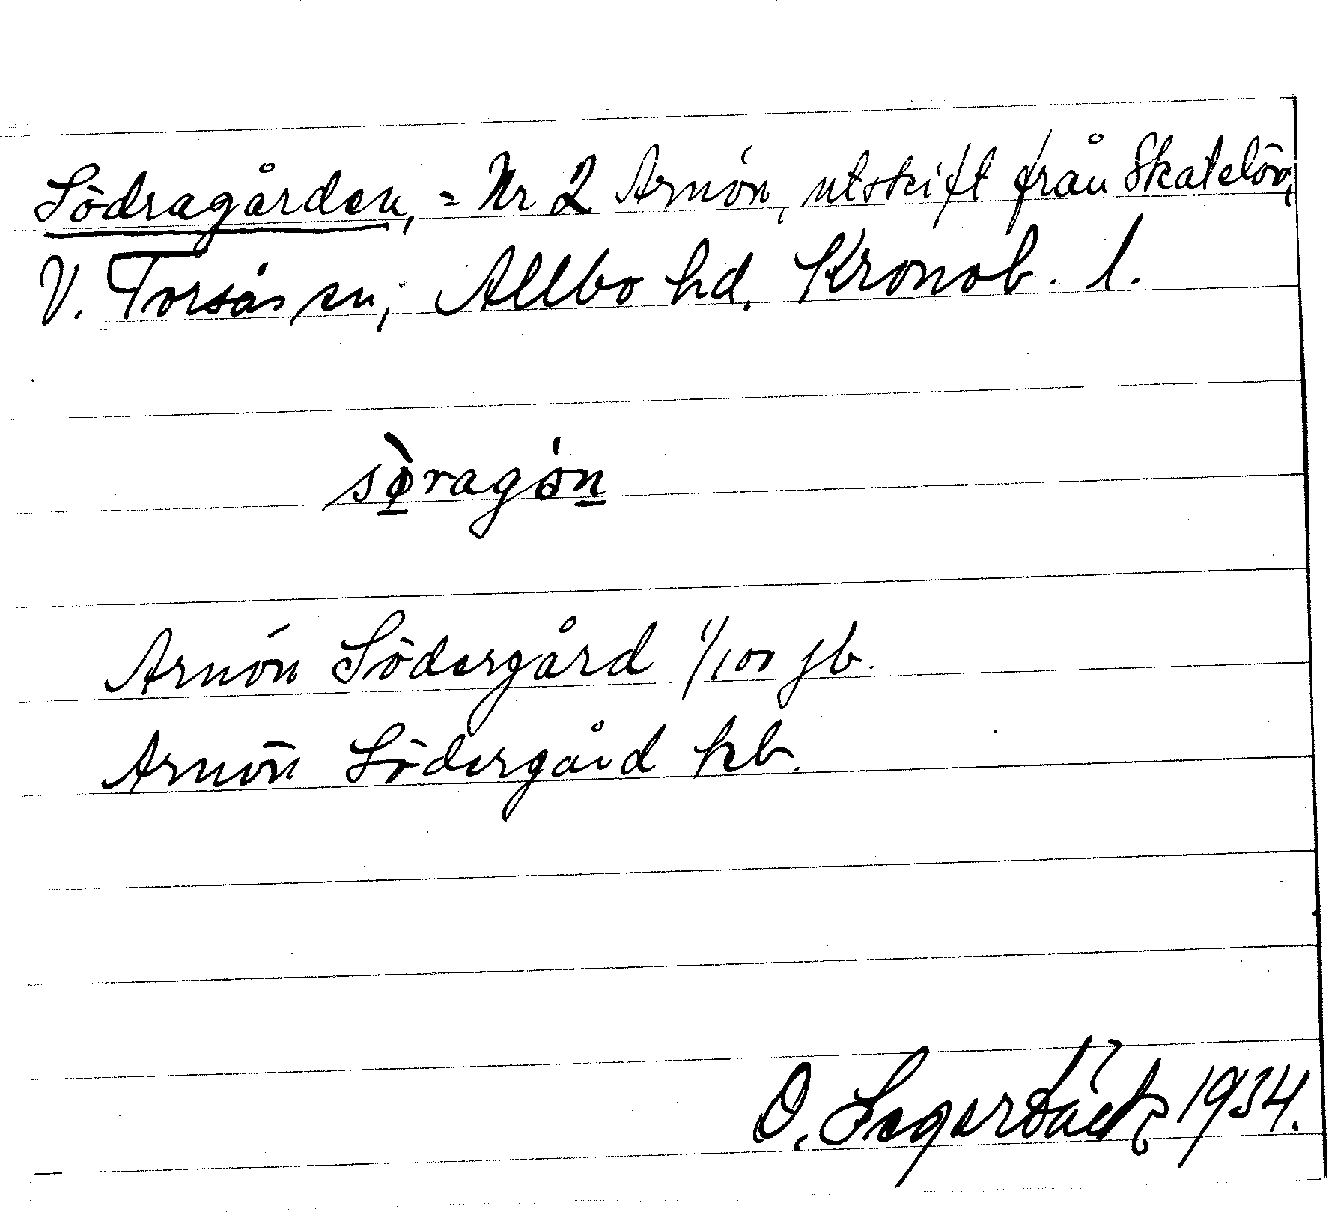 Södragården, = Nr 2 Arnön, utskift från Skatelöv,
V. Torsås sn, Allbo hd. Kronob. l.
sø̀ragón
Arnön Södergård 1/100 jb.
Arnön Södergård kb.
O. Segerbäck 1934.